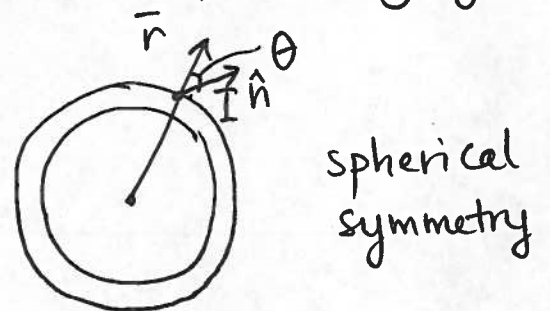 r̄
θ
I n̂
spherical
symmetry